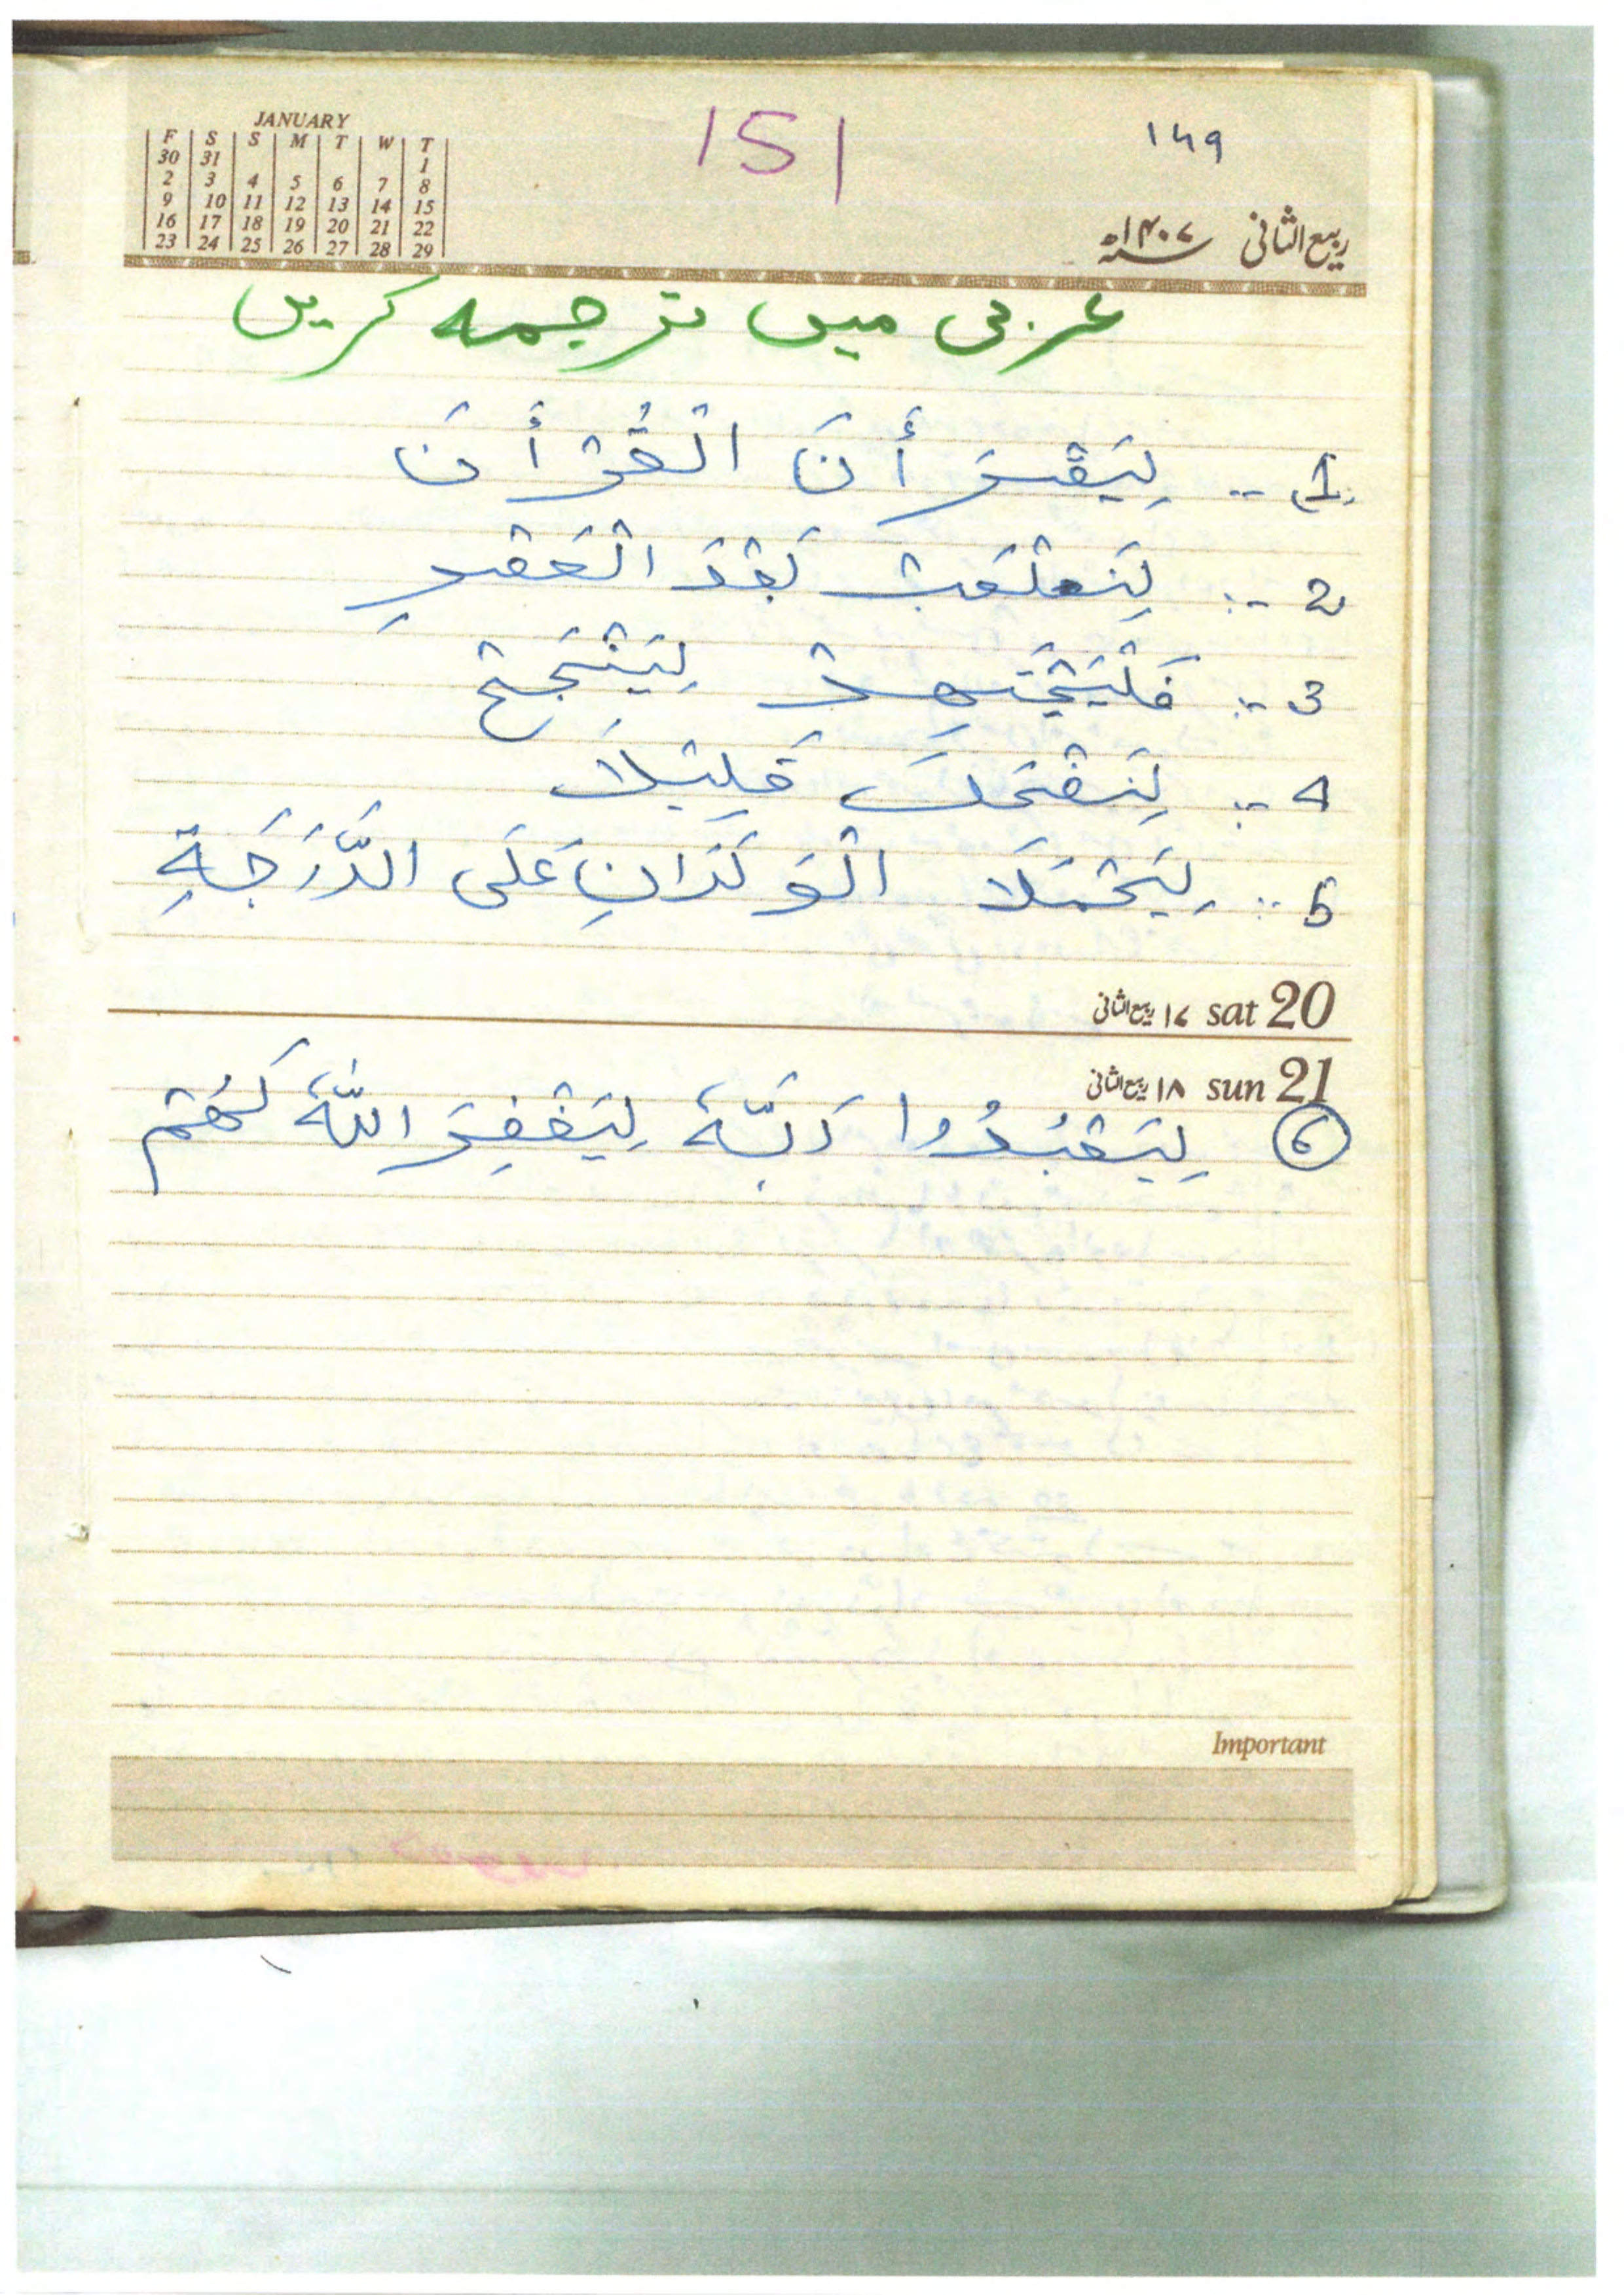 JANUARY
F S S M T W T
30 31 1
2 3 4 5 6 7 8
9 10 11 12 13 14 15
16 17 18 19 20 21 22
23 24 25 26 27 28 29
151
۱۴۹
ربیع الثانی ۱۴۰۷ھ
عربی میں ترجمہ کریں
1 -: لِيَقْرَأْنَ الْقُرْأَنَ
2 -: لِنَلْعَبْ بَعْدَ الْعَصْرِ
3 -: فَلْيَجْتَهِدْ لِيَنْجَحَ
4 -: لِنَضْحَكَ قَلِيْلاً
5 -: لِيَحْمَلَا الْوَلَدَانِ عَلَى الدَّرَجَةِ
۱۷ ربیع الثانی sat 20
۱۸ ربیع الثانی sun 21
6 لِيَعْبُدُوا رَبَّهُ لِيَغْفِرَ اللّٰهُ لَهُمْ
Important